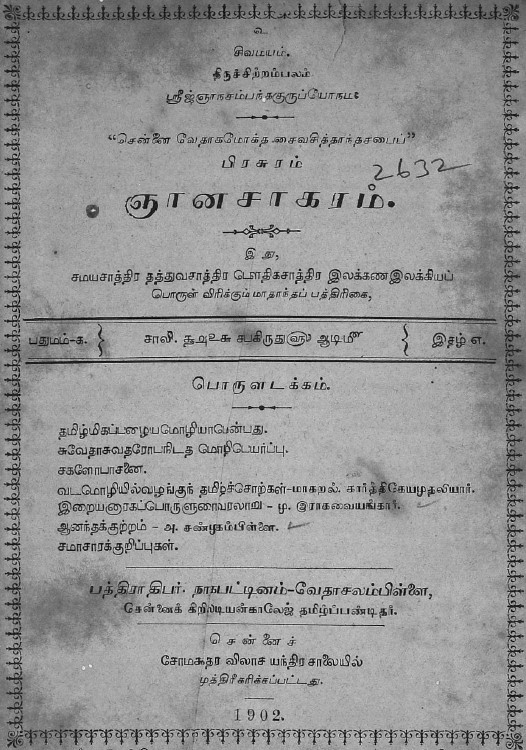 உ
சிவமயம்.
திருச்சிற்றம்பலம்
ஸ்ரீஜ்ஞாநசம்பந்தகுருப்யோநம:
“சென்னை வேதாகமோக்த சைவசித்தாந்தசபைப்”
பிரசுரம்
2632
ஞானசாகரம்.
இது,
சமயசாத்திர தத்துவசாத்திர பௌதிகசாத்திர இலக்கணஇலக்கியப்
பொருள் விரிக்கும் மாதாந்தப் பத்திரிகை,
பதுமம்-க. சாலி. சுபகிருது௵ ஆடிமீ இதழ் எ.
பொருளடக்கம்.
தமிழ்மிகப்பழையமொழியாமென்பது.
சுவேதாசுவதரோபநிடத மொழிபெயர்ப்பு.
சகளோபாசனை.
வடமொழியில்வழங்குந் தமிழ்ச்சொற்கள்-மாகறல். கார்த்திகேயமுதலியார்.
இறையனாரகப்பொருளுரைவரலாறு - மு. இராகவையங்கார்.
ஆனந்தக்குற்றம் - அ. சண்முகம்பிள்ளை.
சமாசாரக்குறிப்புகள்.
பத்திராதிபர். நாகபட்டினம்-வேதாசலம்பிள்ளை,
சென்னைக் கிறிஸ்டியன்காலேஜ் தமிழ்ப்பண்டிதர்.
சென்னைச்
சோமசுந்தர விலாச யந்திர சாலையில்
முத்திரீகரிக்கப்பட்டது.
1902.